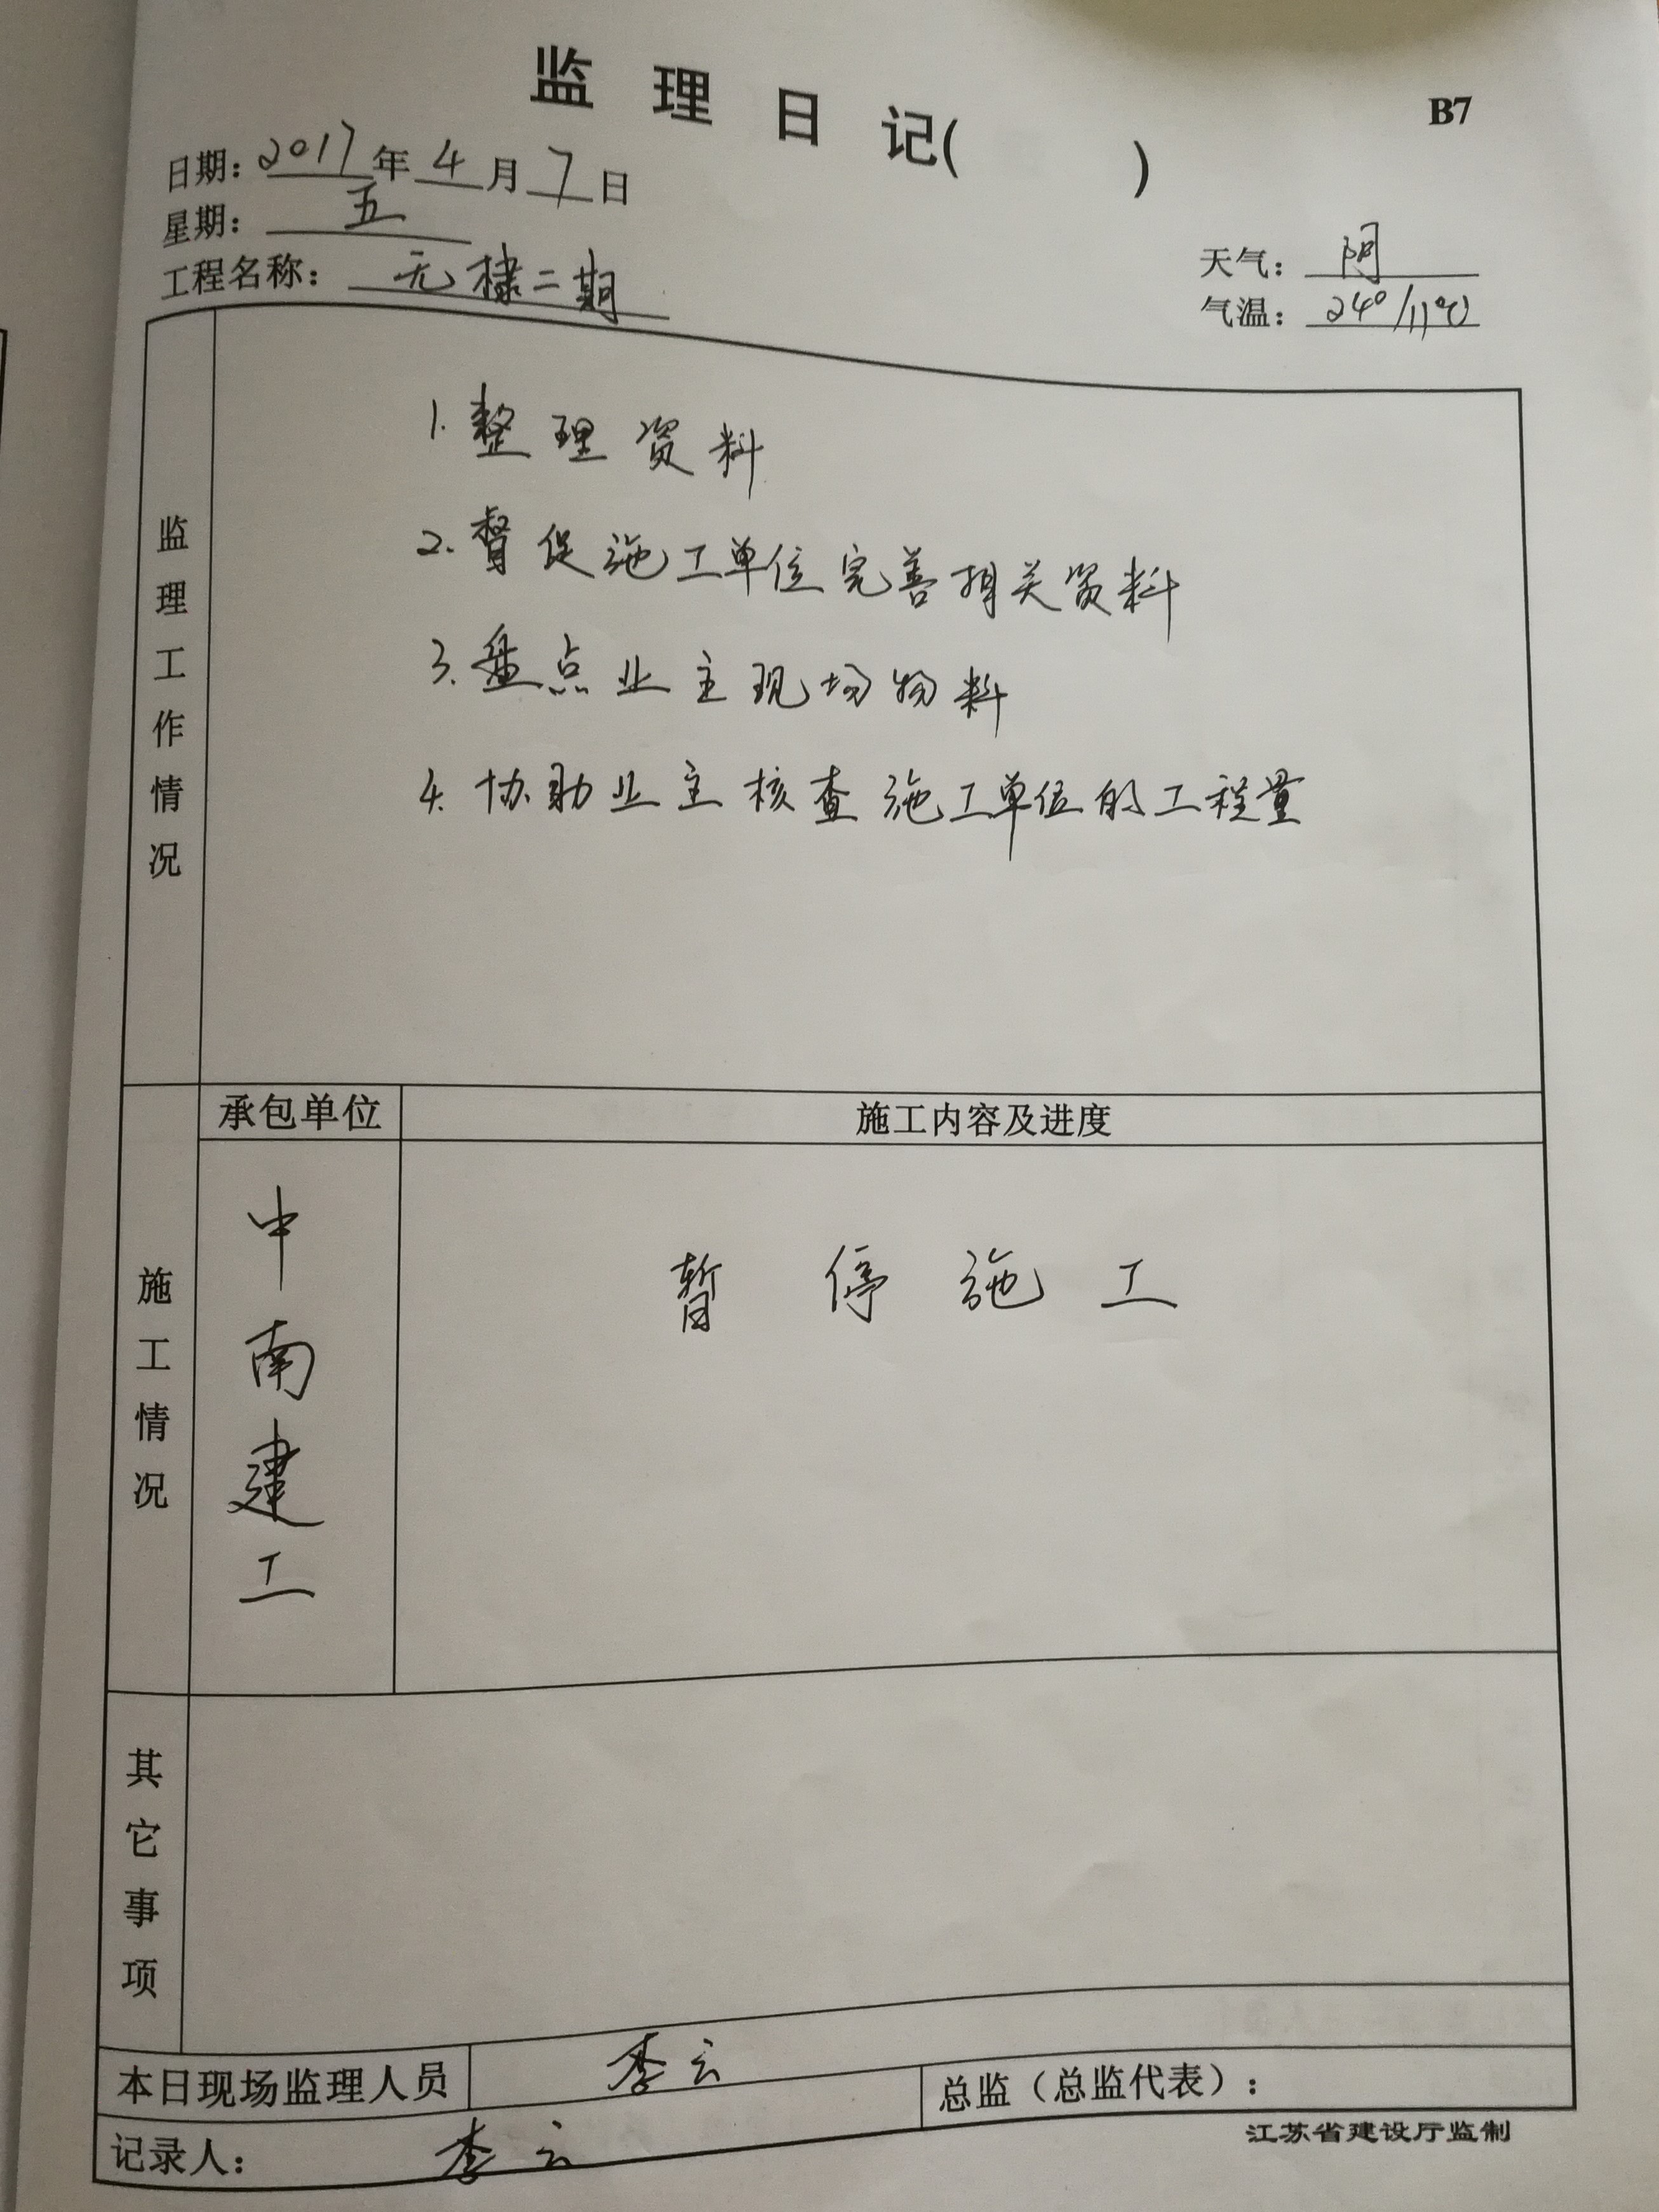 监理日记(　　)
B7
日期：2017年4月7日
星期：五
工程名称：无棣二期
天气：阴
气温：24°/11℃
监理工作情况
1. 整理资料
2. 督促施工单位完善相关资料
3. 盘点业主现场物料
4. 协助业主核查施工单位的工程量
施工情况
承包单位
施工内容及进度
中南建工
暂停施工
其它事项
本日现场监理人员
李云
总监（总监代表）：
记录人：
李云
江苏省建设厅监制